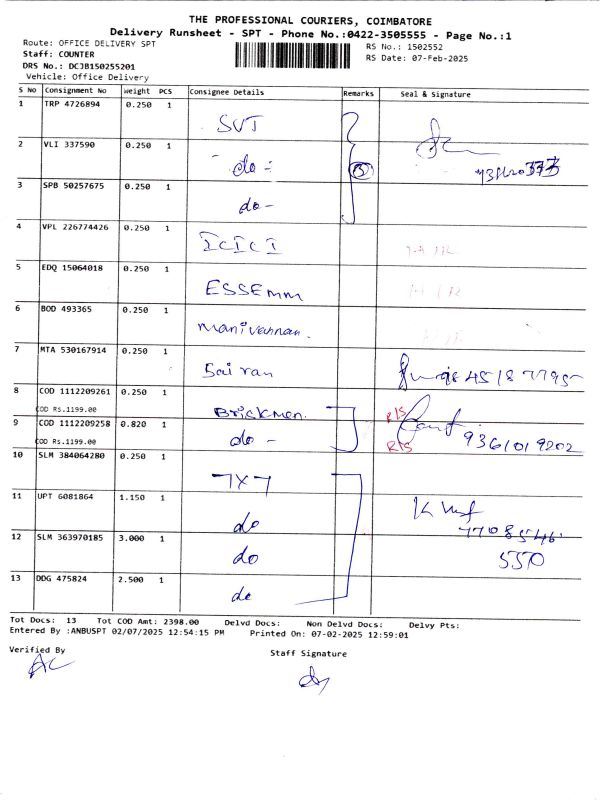 THE PROFESSIONAL COURIERS, COIMBATORE
Delivery Runsheet - SPT - Phone No.:0422-3505555 - Page No.:1
Route: OFFICE DELIVERY SPT RS No.: 1502552
Staff: COUNTER RS Date: 07-Feb-2025
DRS No.: DCJB150255201
Vehicle: Office Delivery
S No Consignment No Weight PCS Consignee Details Remarks Seal & Signature
1 TRP 4726894 0.250 1 SVT
2 VLI 337590 0.250 1 do - 3
3 SPB 50257675 0.250 1 do -
4 VPL 226774426 0.250 1 ICICI
5 EDQ 15064018 0.250 1 ESSEMM
6 BOD 493365 0.250 1 Manivannan.
7 MTA 530167914 0.250 1 Sai ram 98 4518 7795
8 COD 1112209261 0.250 1 Brickmen. R/S
COD Rs.1199.00
9 COD 1112209258 0.820 1 do - R/S 9361019202
COD Rs.1199.00
10 SLM 384064280 0.250 1 7X7
11 UPT 6081864 1.150 1 do 77085546
12 SLM 363970185 3.000 1 do 5570
13 DDG 475824 2.500 1 do
Tot Docs: 13 Tot COD Amt: 2398.00 Delvd Docs: Non Delvd Docs: Delvy Pts:
Entered By :ANBUSPT 02/07/2025 12:54:15 PM Printed On: 07-02-2025 12:59:01
Verified By Staff Signature